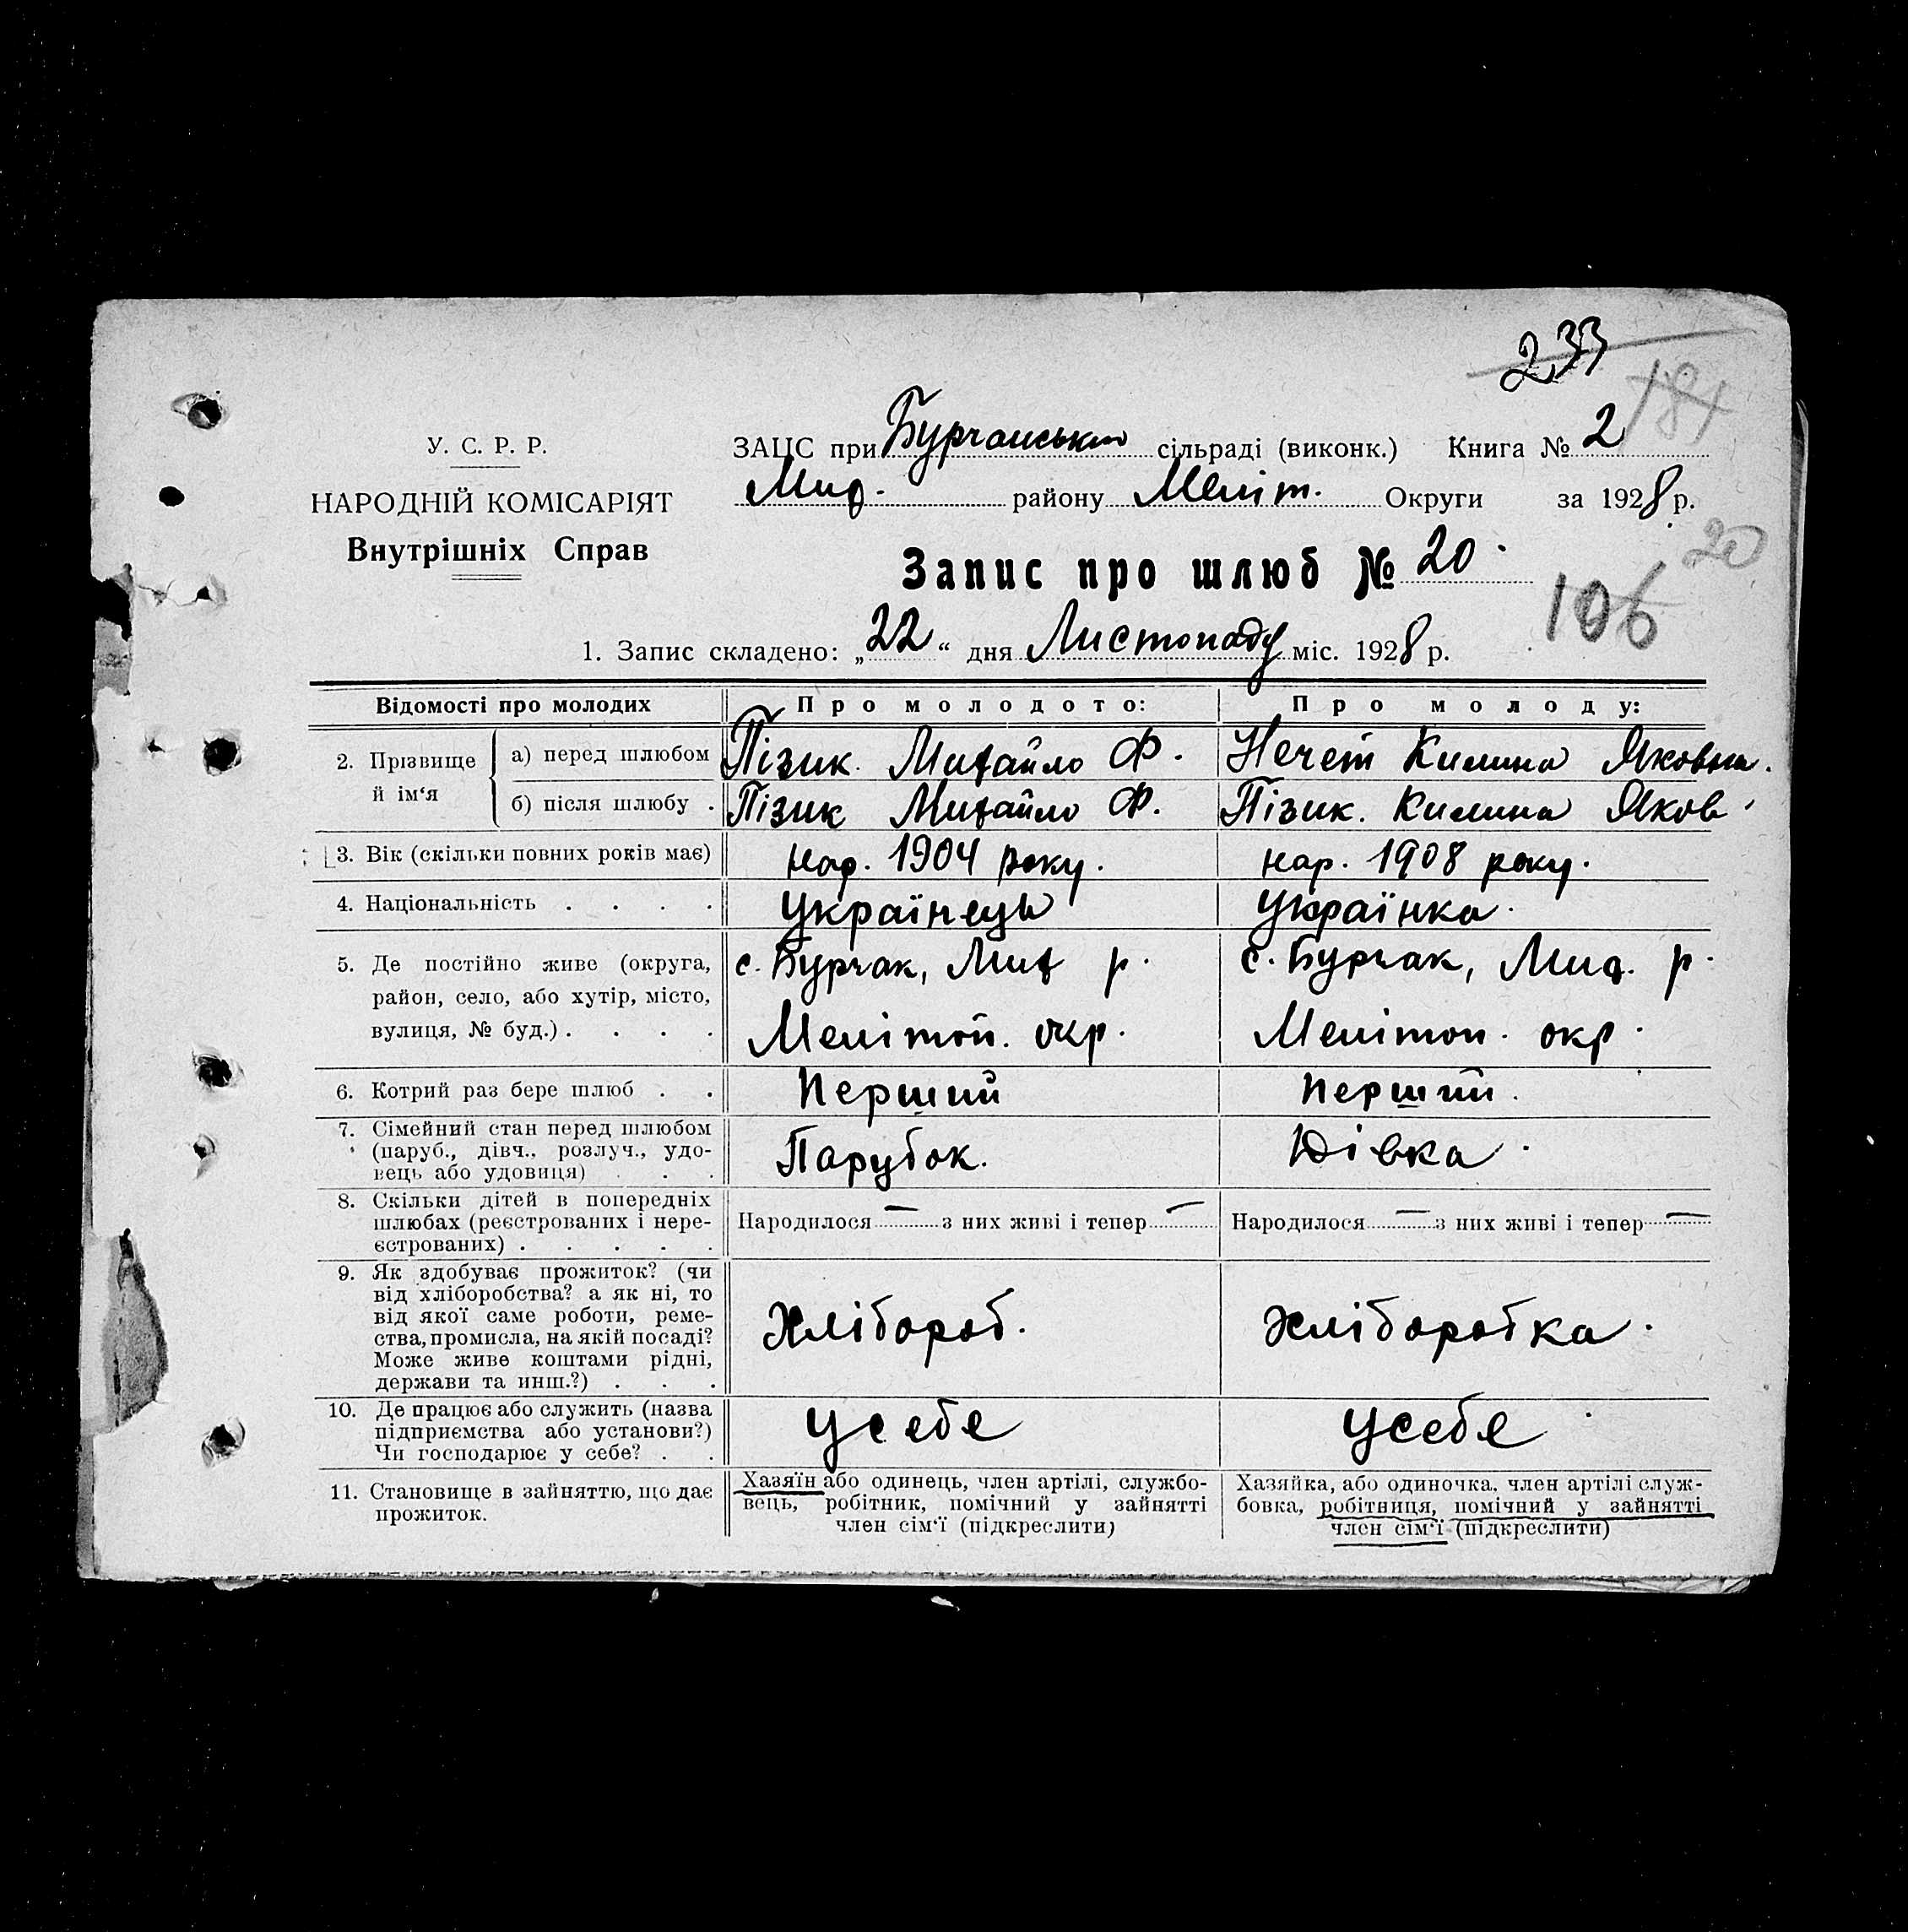 233
184
У. С. Р. Р.
НАРОДНІЙ КОМІСАРІЯТ
Внутрішніх Справ
ЗАЦС при Бурчанськ сільраді (виконк.) Книга № 2
Мих. району Меліт. Округи за 1928 р.
20
Запис про шлюб № 20.
106
1. Запис складено: „22“ дня Листопаду міс. 1928 р.
Відомості про молодих Про молодого: Про молоду:
2. Прізвище й ім‘я
а) перед шлюбом Пізик Михайло Ф. Нечет Килина Яковна.
б) після шлюбу . Пізик Михайло Ф. Пізик. Килина Яков.
3. Вік (скільки повних років має) нар. 1904 року. нар. 1908 року.
4. Національність . . . . Українець Українка.
5. Де постійно живе (округа, район, село, або хутір, місто, вулиця, № буд.) . . . .
с. Бурчак, Мих р. с. Бурчак, Мих. р.
Мелітоп. окр. Мелітоп. окр.
6. Котрий раз бере шлюб . . Перший Перший.
7. Сімейний стан перед шлюбом
(паруб., дівч., розлуч., удо-
вець або удовиця) . . . Парубок. Дівка.
8. Скільки дітей в попередніх
шлюбах (реєстрованих і нере-
єстрованих) . . . . .
Народилося — з них живі і тепер — Народилося — з них живі і тепер —
9. Як здобуває прожиток? (чи
від хліборобства? а як ні, то
від якої саме роботи, реме-
ства, промисла, на якій посаді?
Може живе коштами рідні,
держави та инш.?) . . .
Хлібороб. Хліборобка.
10. Де працює або служить (назва
підприємства або установи?)
Чи господарює у себе? . .
У себе У себе
11. Становище в зайняттю, що дає
прожиток.
Хазяїн або одинець, член артілі, службо-
вець, робітник, помічний у зайнятті
член сім‘ї (підкреслити)
Хазяйка, або одиночка, член артілі служ-
бовка, робітниця, помічний у зайнятті
член сім‘ї (підкреслити)